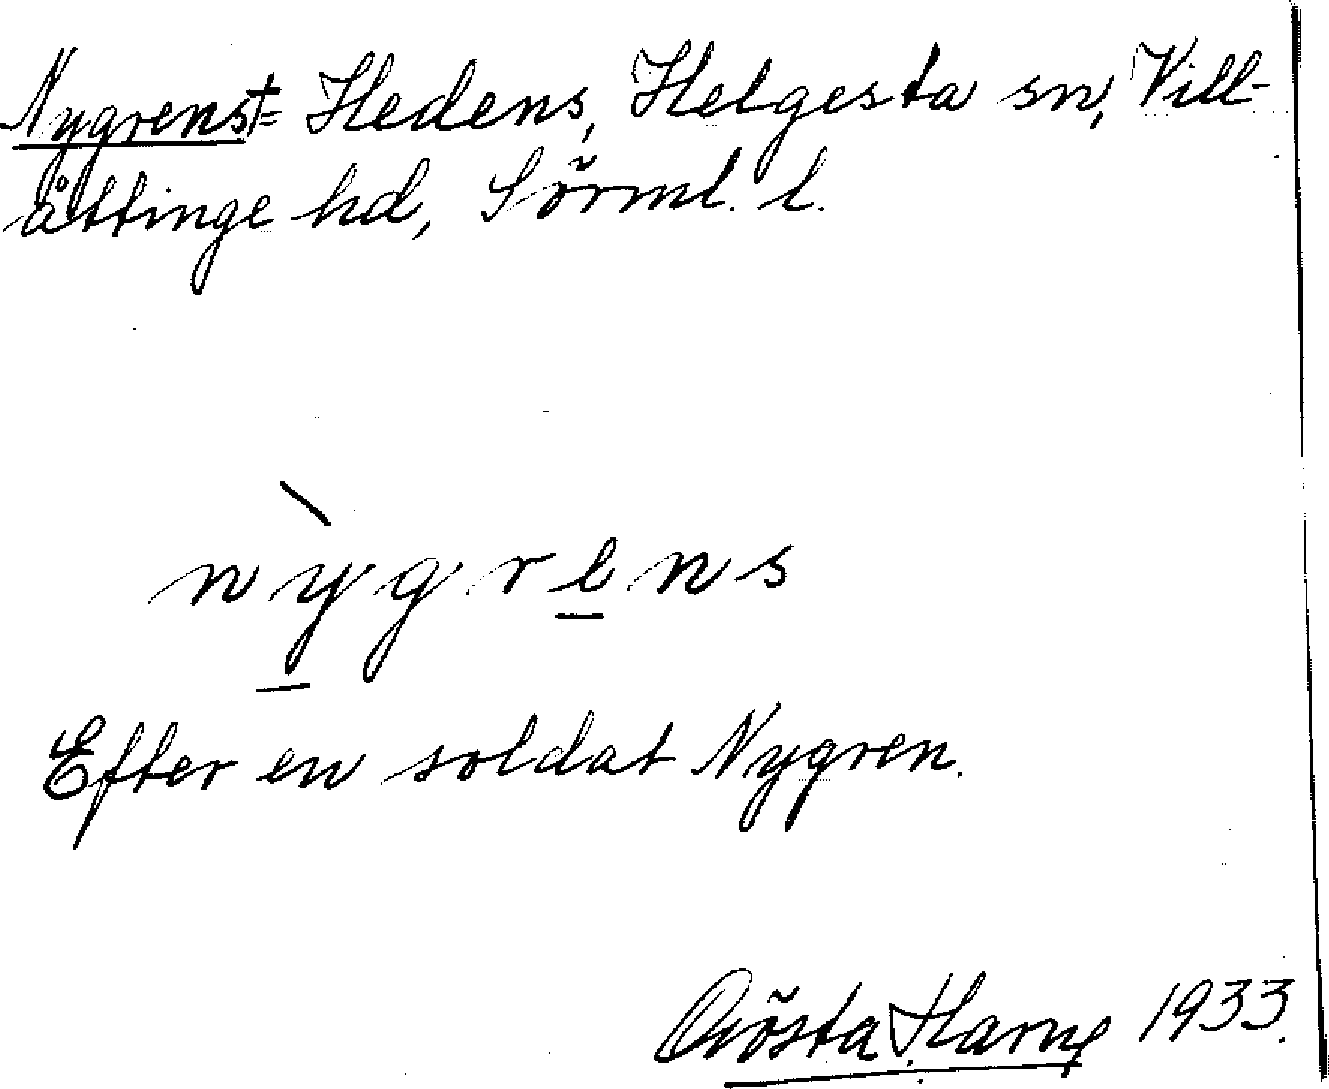 Nygrens† = Hedens, Helgesta sn, Vill-
åttinge hd, Sörml. l.
nỳgrens
Efter en soldat Nygren.
Gösta Harne 1933.